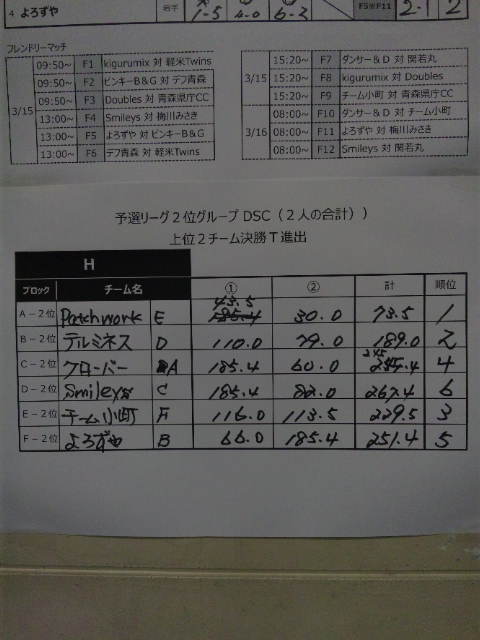 4 よろずや 若手 1-5 6-0 6-2 2-1 2
フレンドリーマッチ
3/15 09:50~ F1 kigurumix 対 軽米Twins
09:50~ F2 ピンキーB&G 対 デフ青森
09:50~ F3 Doubles 対 青森県庁CC
13:00~ F4 Smileys 対 梅川みさき
13:00~ F5 よろずや 対 ピンキーB&G
13:00~ F6 デフ青森 対 軽米Twins
3/15 15:20~ F7 ダンサー&D 対 関若丸
15:20~ F8 kigurumix 対 Doubles
15:20~ F9 チーム小町 対 青森県庁CC
3/16 08:00~ F10 ダンサー&D 対 チーム小町
08:00~ F11 よろずや 対 梅川みさき
08:00~ F12 Smileys 対 関若丸
予選リーグ2位グループ DSC(2人の合計))
上位2チーム決勝T進出
H
ブロック チーム名 ① ② 計 順位
A-2位 Patchwork E 43.5 185.4 30.0 73.5 1
B-2位 テルミネス D 110.0 79.0 189.0 2
C-2位 クローバー A 185.4 60.0 245.4 4
D-2位 Smileys C 185.4 82.0 267.4 6
E-2位 チーム小町 F 116.0 113.5 229.5 3
F-2位 よろずや B 66.0 185.4 251.4 5